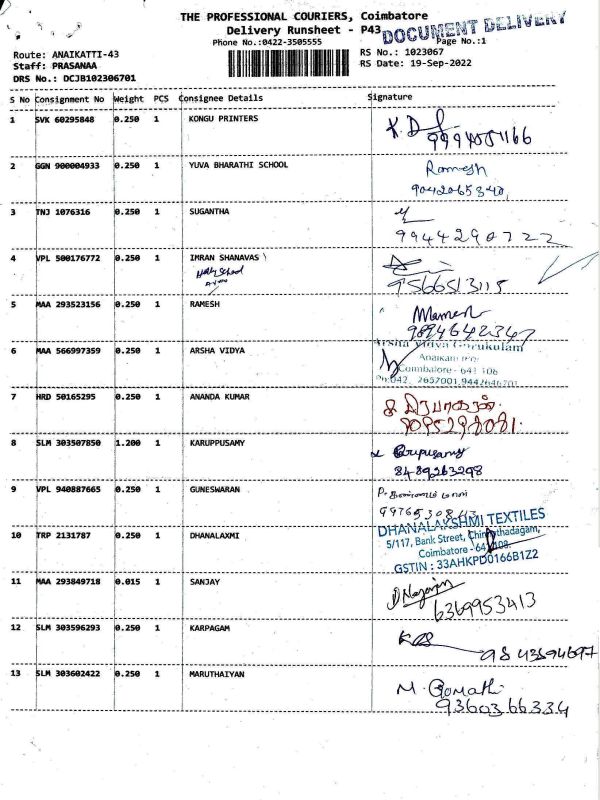 THE PROFESSIONAL COURIERS, Coimbatore
Delivery Runsheet - P43
DOCUMENT DELIVERY
Phone No.:0422-3505555
Page No.:1
Route: ANAIKATTI-43
RS No.: 1023067
Staff: PRASANAA
RS Date: 19-Sep-2022
DRS No.: DCJB102306701
S No Consignment No Weight PCS Consignee Details Signature
1 SVK 60295848 0.250 1 KONGU PRINTERS
2 GGN 900004933 0.250 1 YUVA BHARATHI SCHOOL Ramesh
9042065340
3 TNJ 1076316 0.250 1 SUGANTHA
9944290722
4 VPL 500176772 0.250 1 IMRAN SHANAVAS
9566513115
5 MAA 293523156 0.250 1 RAMESH
9894642347
6 MAA 566997359 0.250 1 ARSHA VIDYA Arsha Vidya Gurukulam
Coimbatore - 641 108
7 HRD 50165295 0.250 1 ANANDA KUMAR
9095298081
8 SLM 303507850 1.200 1 KARUPPUSAMY
8489263298
9 VPL 940887665 0.250 1 GUNESWARAN
10 TRP 2131787 0.250 1 DHANALAXMI DHANALAKSHMI TEXTILES
5/117, Bank Street, Chinnathadagam,
Coimbatore - 641 108.
GSTIN : 33AHKPD0166B1Z2
11 MAA 293849718 0.015 1 SANJAY
6369953413
12 SLM 303596293 0.250 1 KARPAGAM
13 SLM 303602422 0.250 1 MARUTHAIYAN M. Gomathi
9360366334